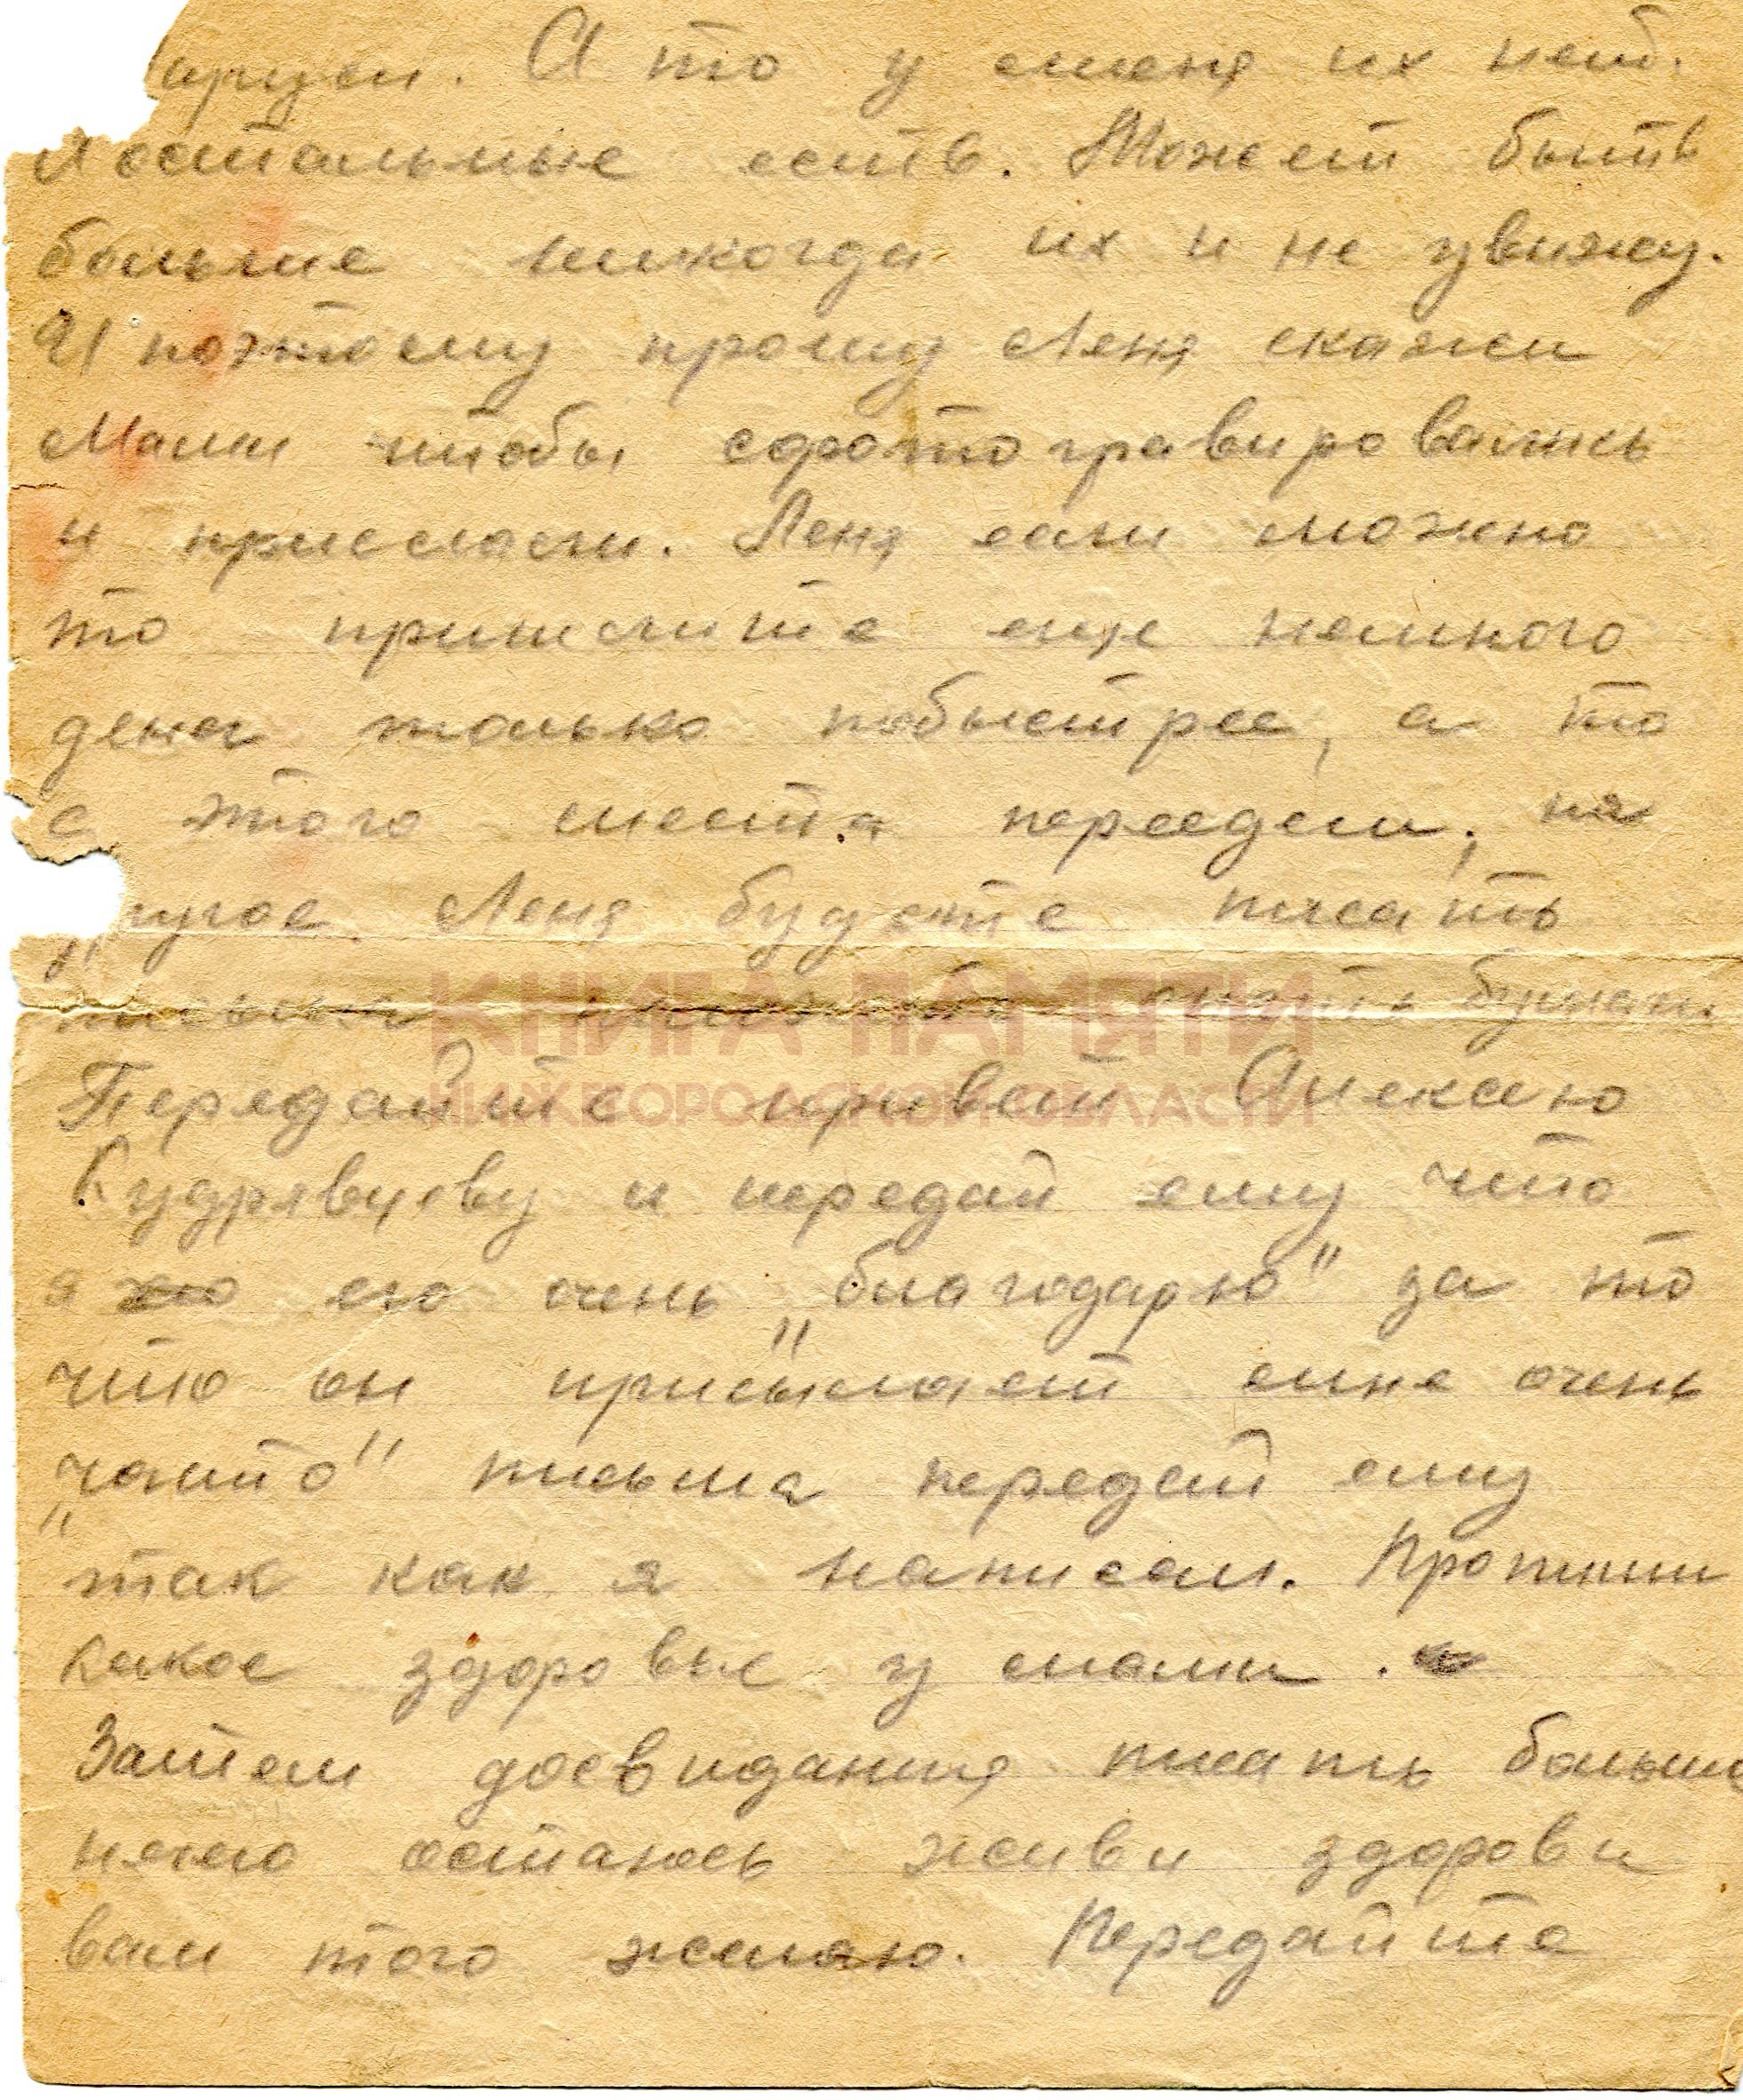 А то у меня их нет.
Аостальные есть. Может быть
больше никогда их и не увижу.
И поэтому прошу Леня скажи
Мами чтобы сфотогравировались
и прислали. Леня если можно
то пришлите еще немного
денег только побыстрее, а то
с этого места переедем, на
ругое Леня будете писать
письма бумаги
КНИГА ПАМЯТИ
НИЖЕГОРОДСКОЙ ОБЛАСТИ
Передайте привет Алексею
Кудрявцеву и передай ему что
я его очень „благодарю" за то
что он присылает мне очень
„часто" письма передай ему
так как я написал. Пропиши
какое здоровье у мами.
Затем досвидания писать больше
нечего остаюсь живы здоровы
вам того желаю. Передайте